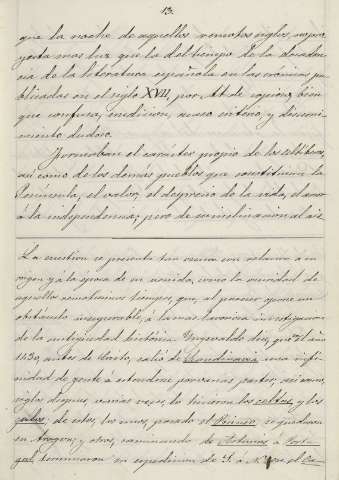 13.
que la noche de aquellos remotos siglos, no pro-
yecta mas luz que la del tiempo de la decaden-
cia de la literatura española en las crónicas pu-
blicadas en el siglo XVII, por
que confusa, criterio, y
miento dudoso.
Formaban el carácter propio de los celtíberos,
así como de los demas pueblos que constituian la
Península, el valor, el desprecio de la vida, el amor
á la independencia; pero de su inclinacion al ais-
La cuestion se presenta tan oscura con relacion á su
orígen y á la época de su venida, como la oscuridad de
aquellos remotísimos tiempos, que, al parecer opone un
obstáculo insuperable, á la mas laboriosa investigacion
de la antigüedad histórica. dice, que el año
1430, antes de Cristo, salió de Scandinavia una infi-
nidad de gente á estenderse por varias partes; así como,
siglos despues varias veces, lo hicieron los celtas y los
galos; de estos, los unos, pasado el Pirineo, se quedaron
en Aragon, y otros, caminando de Asturias á Portu-
gal, terminaron su espedicion de S. á N. en el